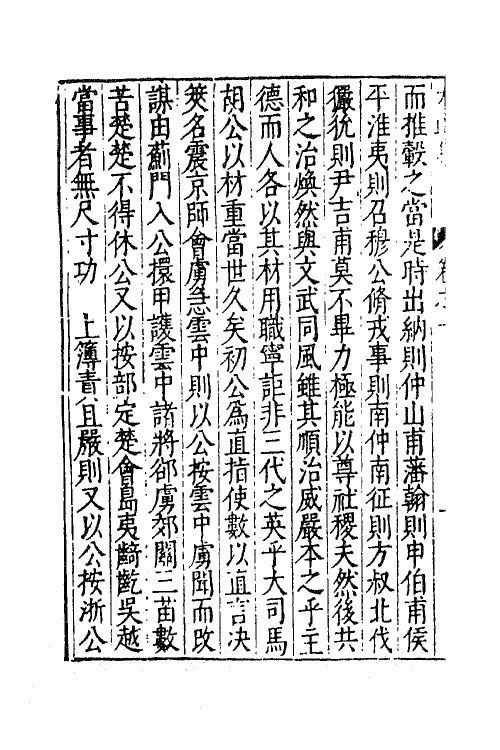 而推轂之當是時出納則仲山甫藩翰則申伯甫侯
平淮夷則召穆公脩戎事則南仲南征則方叔北伐
玁狁則尹吉甫莫不畢力極能以尊社稷夫然後共
和之治煥然與文武同風雖其順治威嚴本之乎主
德而人各以其材用職寧詎非三代之英乎大司馬
胡公以材重當世久矣初公為直指使數以直言决
筴名震京師會虜急雲中則以公按雲中虜聞而改
謀由薊門入公擐甲護雲中諸將郤虜郊關三苗數
苦楚楚不得休公又以按部定楚會島夷齮齕吳越
當事者無尺寸功　上簿責且嚴則又以公按浙公